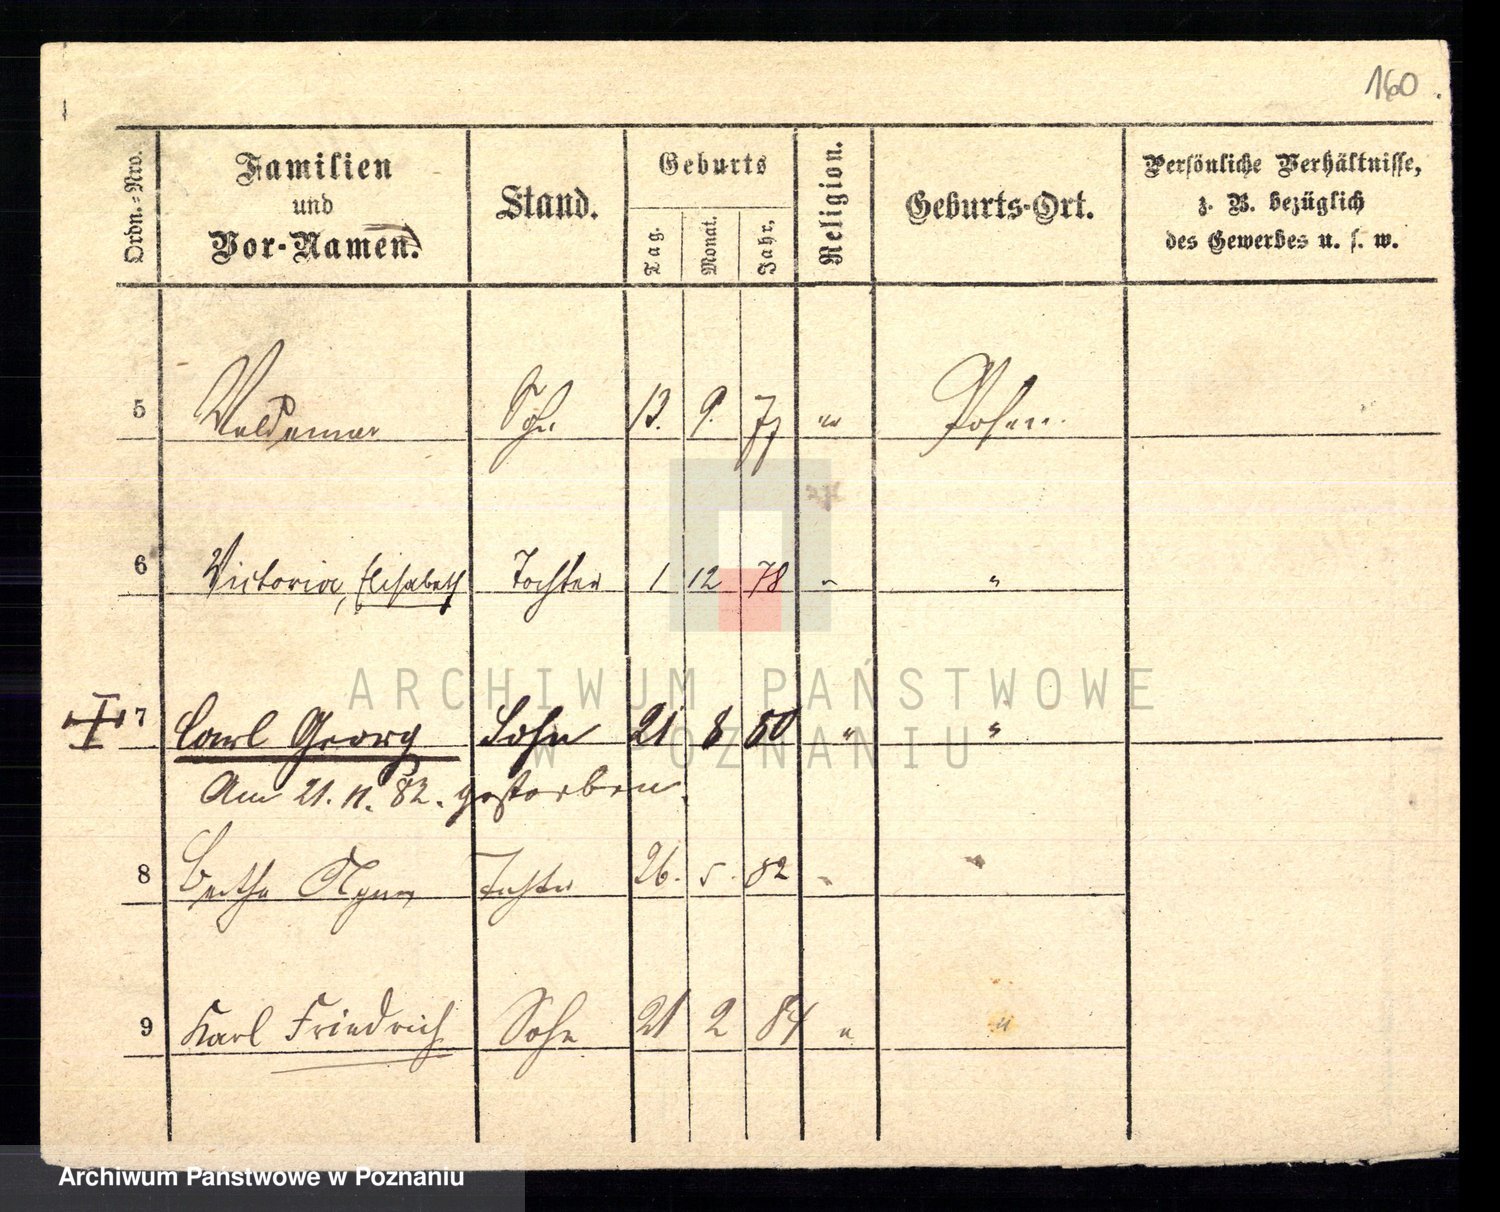 160.
Ordn.-Nro.
Familien
und
Vor-Namen.
Stand.
Geburts
Tag.
Monat.
Jahr.
Religion.
Geburts-Ort.
Persönliche Verhältnisse,
z. B. bezüglich
des Gewerbes u. s. w.
5 Waldemar Sohn 13. 9. 77 " Posen.
6 Victoria, Elisabeth Tochter 1 12 78 " "
7 Carl Georg Sohn 21 8 80 " "
Am 21. 11. 82. gestorben.
8 Bertha Agnes Tochter 26. 5. 82 " "
9 Karl Friedrich Sohn 21 2 84 " "
ARCHIWUM PAŃSTWOWE
W POZNANIU
Archiwum Państwowe w Poznaniu